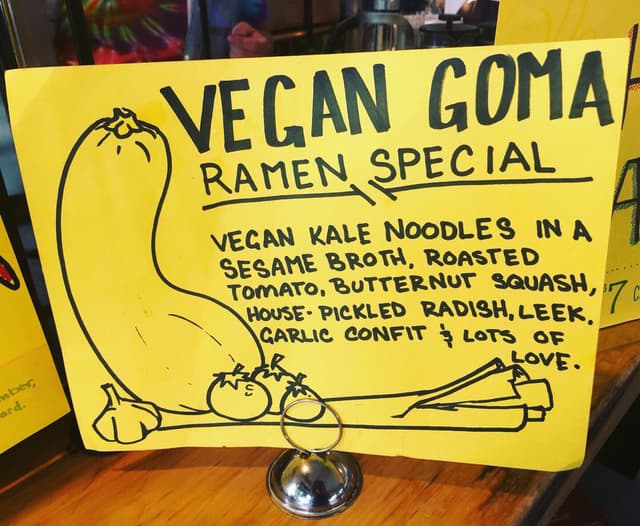 VEGAN GOMA
RAMEN SPECIAL
VEGAN KALE NOODLES IN A
SESAME BROTH, ROASTED
TOMATO, BUTTERNUT SQUASH,
HOUSE-PICKLED RADISH, LEEK,
GARLIC CONFIT & LOTS OF
LOVE.